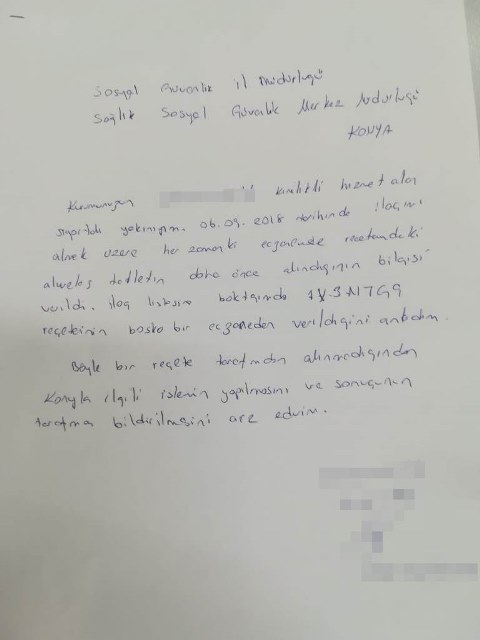 Sosyal Güvenlik il Müdürlüğü
Sağlık Sosyal Güvenlik Merkez Müdürlüğü
KONYA
Kurumunuzun kimlikli hizmet alan
sigortalı yakınıyım. 06.09.2018 tarihinde ilacımı
almak üzere her zamanki eczanemde reçetemdeki
tabletin daha önce alındığının bilgisi
verildi. ilaç listesine baktığımda
reçetenin başka bir eczaneden verildiğini anladım.
Böyle bir reçete tarafımdan alınmadığından
Konuyla ilgili işlemin yapılmasını ve sonucunun
tarafıma bildirilmesini arz ederim.